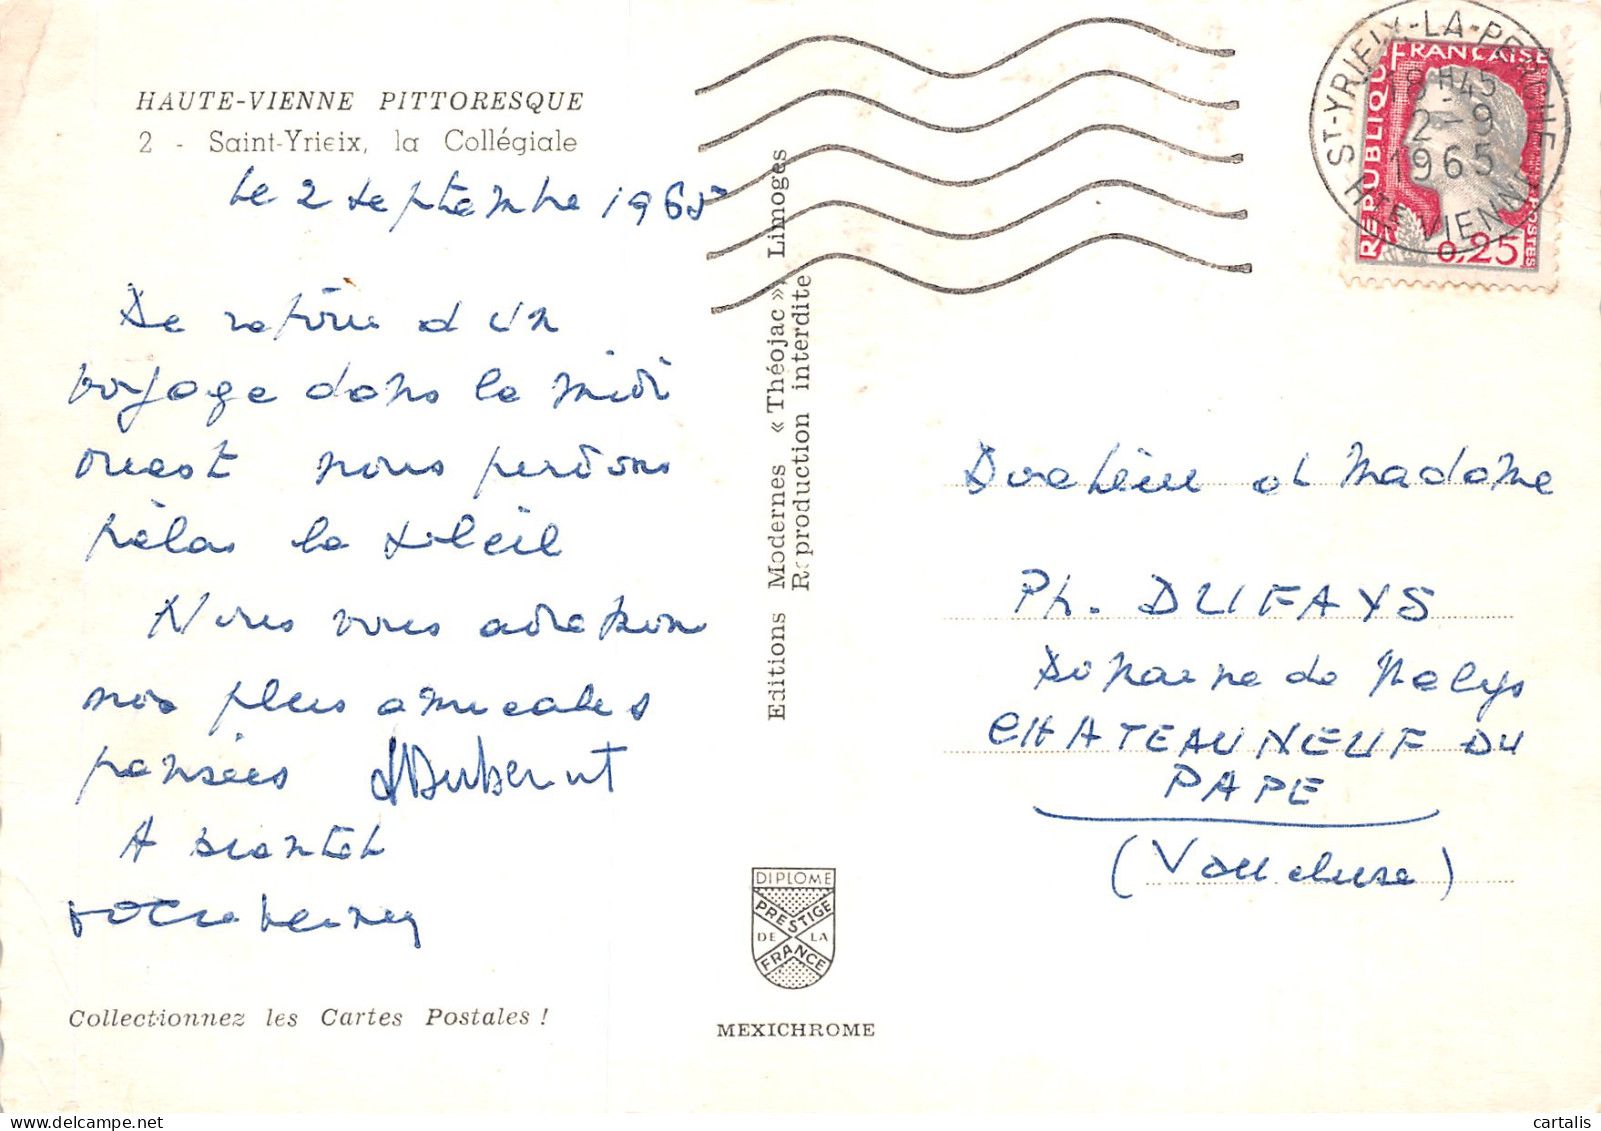 HAUTE-VIENNE PITTORESQUE
2 - Saint-Yrieix, la Collégiale
le 2 septembre 1965
De retour d un
voyage dans le midi
ouest nous perdons
hélas le soleil
Nous vous adressons
nos plus amicales
pensées
A bientot
votre
Collectionnez les Cartes Postales !
Editions Modernes « Théojac », Limoges
Reproduction interdite
DIPLOME
PRESTIGE
DE LA
FRANCE
MEXICHROME
ST-YRIEIX-LA-PERCHE
18H45
2-9
1965
HTE VIENNE
REPUBLIQUE FRANÇAISE
POSTES
0,25
Docteur et Madame
Ph. DUFAYS
Domaine de Nalys
CHATEAUNEUF DU
PAPE
(Vaucluse)
cartalis